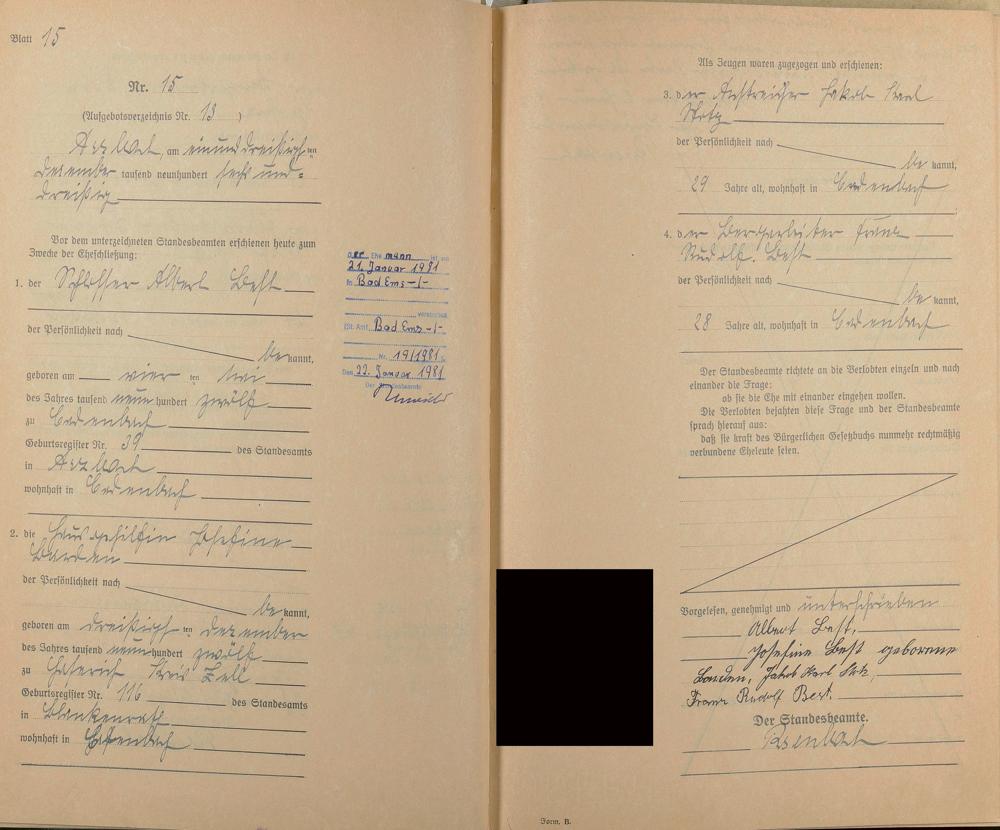 Blatt 15
Nr. 15
(Aufgebotsverzeichnis Nr. 13 )
Arzbach, am einunddreißigsten
Dezember tausend neunhundert sechs und-
dreißig
Vor dem unterzeichneten Standesbeamten erschienen heute zum
Zwecke der Eheschließung:
1. der Schlosser Albert Best
der Persönlichkeit nach
bekannt,
geboren am vier ten Mai
des Jahres tausend neunhundert zwölf
zu Cadenbach
Geburtsregister Nr. 39 des Standesamts
in Arzbach
wohnhaft in Cadenbach
2. die Hausgehilfin Josefine
der Persönlichkeit nach
bekannt,
geboren am dreißigsten Dezember
des Jahres tausend neunhundert zwölf
zu Kreis Zell
Geburtsregister Nr. 116 des Standesamts
in Blankenrath
wohnhaft in
der Ehemann ist am
21. Januar 1981
in Bad Ems -/-
verstorben
(St. Amt Bad Ems -/-
Nr. 19/1981)
Den 22. Januar 1981
Der Standesbeamte
Als Zeugen waren zugezogen und erschienen:
3. der Anstreicher Jakob Karl
der Persönlichkeit nach
bekannt,
29 Jahre alt, wohnhaft in Cadenbach
4. der Bergarbeiter Franz
Rudolf Best
der Persönlichkeit nach
bekannt,
28 Jahre alt, wohnhaft in Cadenbach
Der Standesbeamte richtete an die Verlobten einzeln und nach
einander die Frage:
ob sie die Ehe mit einander eingehen wollen.
Die Verlobten bejahten diese Frage und der Standesbeamte
sprach hierauf aus:
daß sie kraft des Bürgerlichen Gesetzbuchs nunmehr rechtmäßig
verbundene Eheleute seien.
Vorgelesen, genehmigt und unterschrieben
Albert Best,
Josefine Best geborene
Jakob Karl
Franz Rudolf Best.
Der Standesbeamte.
Form. B.